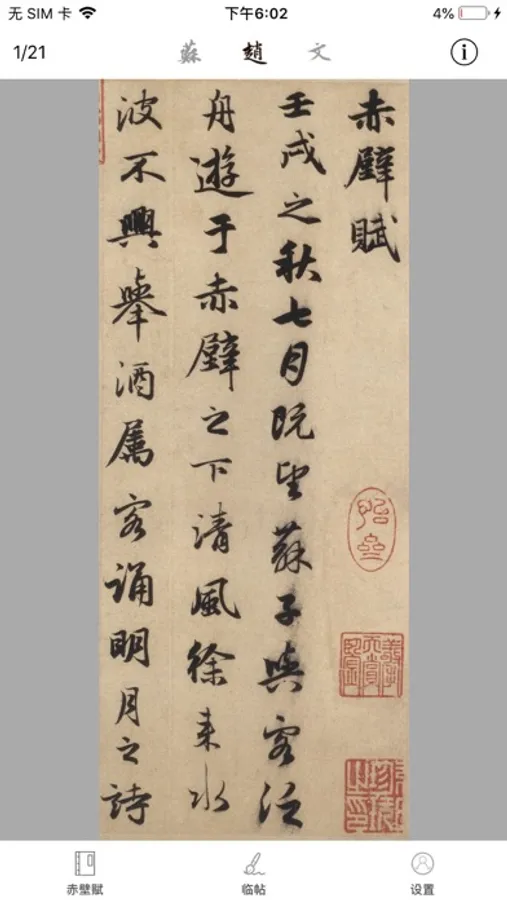 无 SIM 卡
下午6:02
4%
1/21
蘇 趙 文
赤壁賦
壬戌之秋七月既望蘇子與客泛
舟遊于赤壁之下清風徐来水
波不興舉酒属客誦明月之詩
赤壁赋
临帖
设置